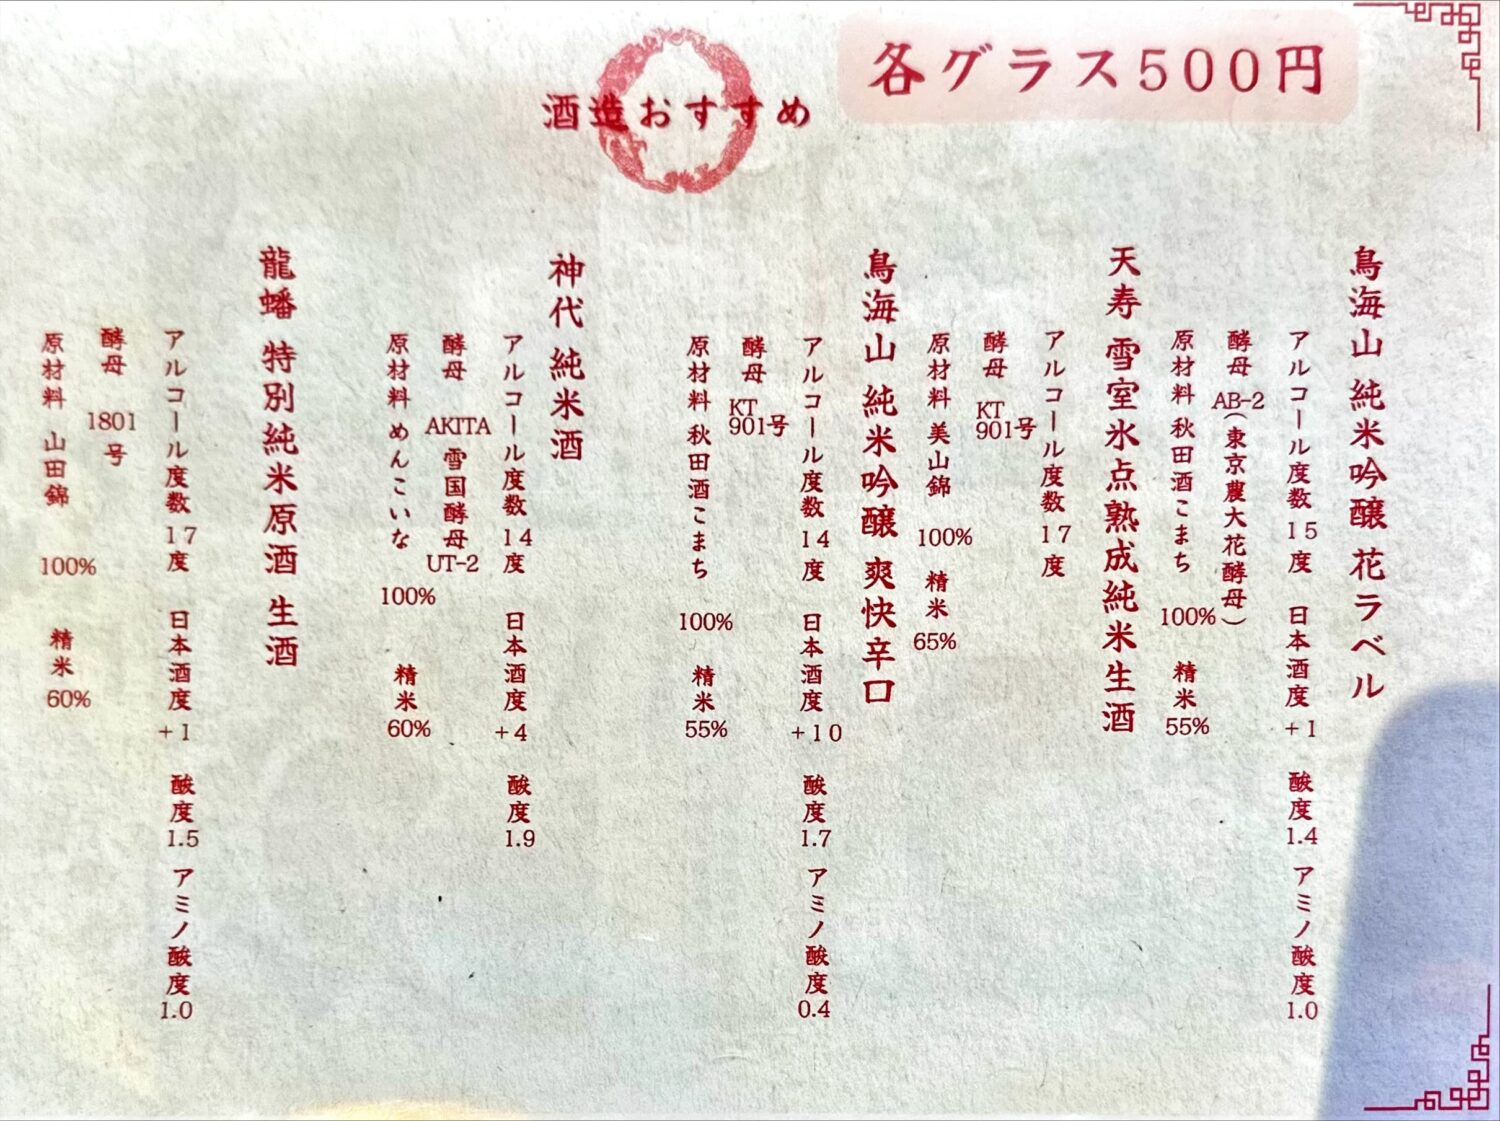 各グラス500円
酒造おすすめ
鳥海山 純米吟醸 花ラベル
アルコール度数 15度 日本酒度 +1 酸度 1.4 アミノ酸度 1.0
酵母 AB-2(東京農大花酵母)
原材料 秋田酒こまち 100% 精米 55%
天寿 雪室氷点熟成純米生酒
アルコール度数 17度
酵母 KT 901号
原材料 美山錦 100% 精米 65%
鳥海山 純米吟醸 爽快辛口
アルコール度数 14度 日本酒度 +10 酸度 1.7 アミノ酸度 0.4
酵母 KT 901号
原材料 秋田酒こまち 100% 精米 55%
神代 純米酒
アルコール度数 14度 日本酒度 +4 酸度 1.9
酵母 AKITA 雪国酵母 UT-2
原材料 めんこいな 100% 精米 60%
龍蟠 特別純米原酒 生酒
アルコール度数 17度 日本酒度 +1 酸度 1.5 アミノ酸度 1.0
酵母 1801号
原材料 山田錦 100% 精米 60%